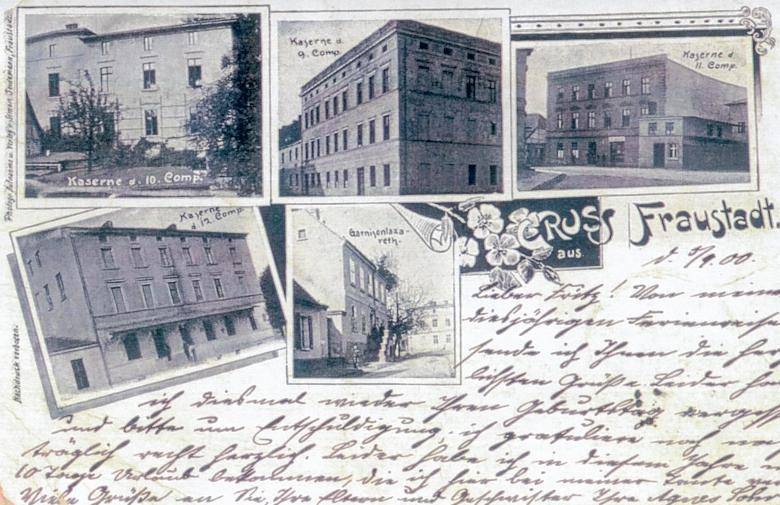 Kaserne d. 10. Comp.
Kaserne d.
9. Comp.
Kaserne d.
11. Comp.
Kaserne
d. 12. Comp.
Garnisonlaza-
reth.
GRUSS
aus
Fraustadt.
Nachdruck verboten.
d. 5/9. 00.
Lieber Fritz! Von meiner
diesjährigen Ferienreise
sende ich Ihnen die herz
lichsten Grüße. Leider
ich diesmal wieder Ihren Geburtstag
und bitte um Entschuldigung, ich gratuliere noch
träglich recht herzlich. Leider habe ich in diesem Jahre
10 Tage Urlaub bekommen, die ich hier bei meiner Tante
Viele Grüße an Sie, Ihre Eltern und Geschwister Ihre Agnes